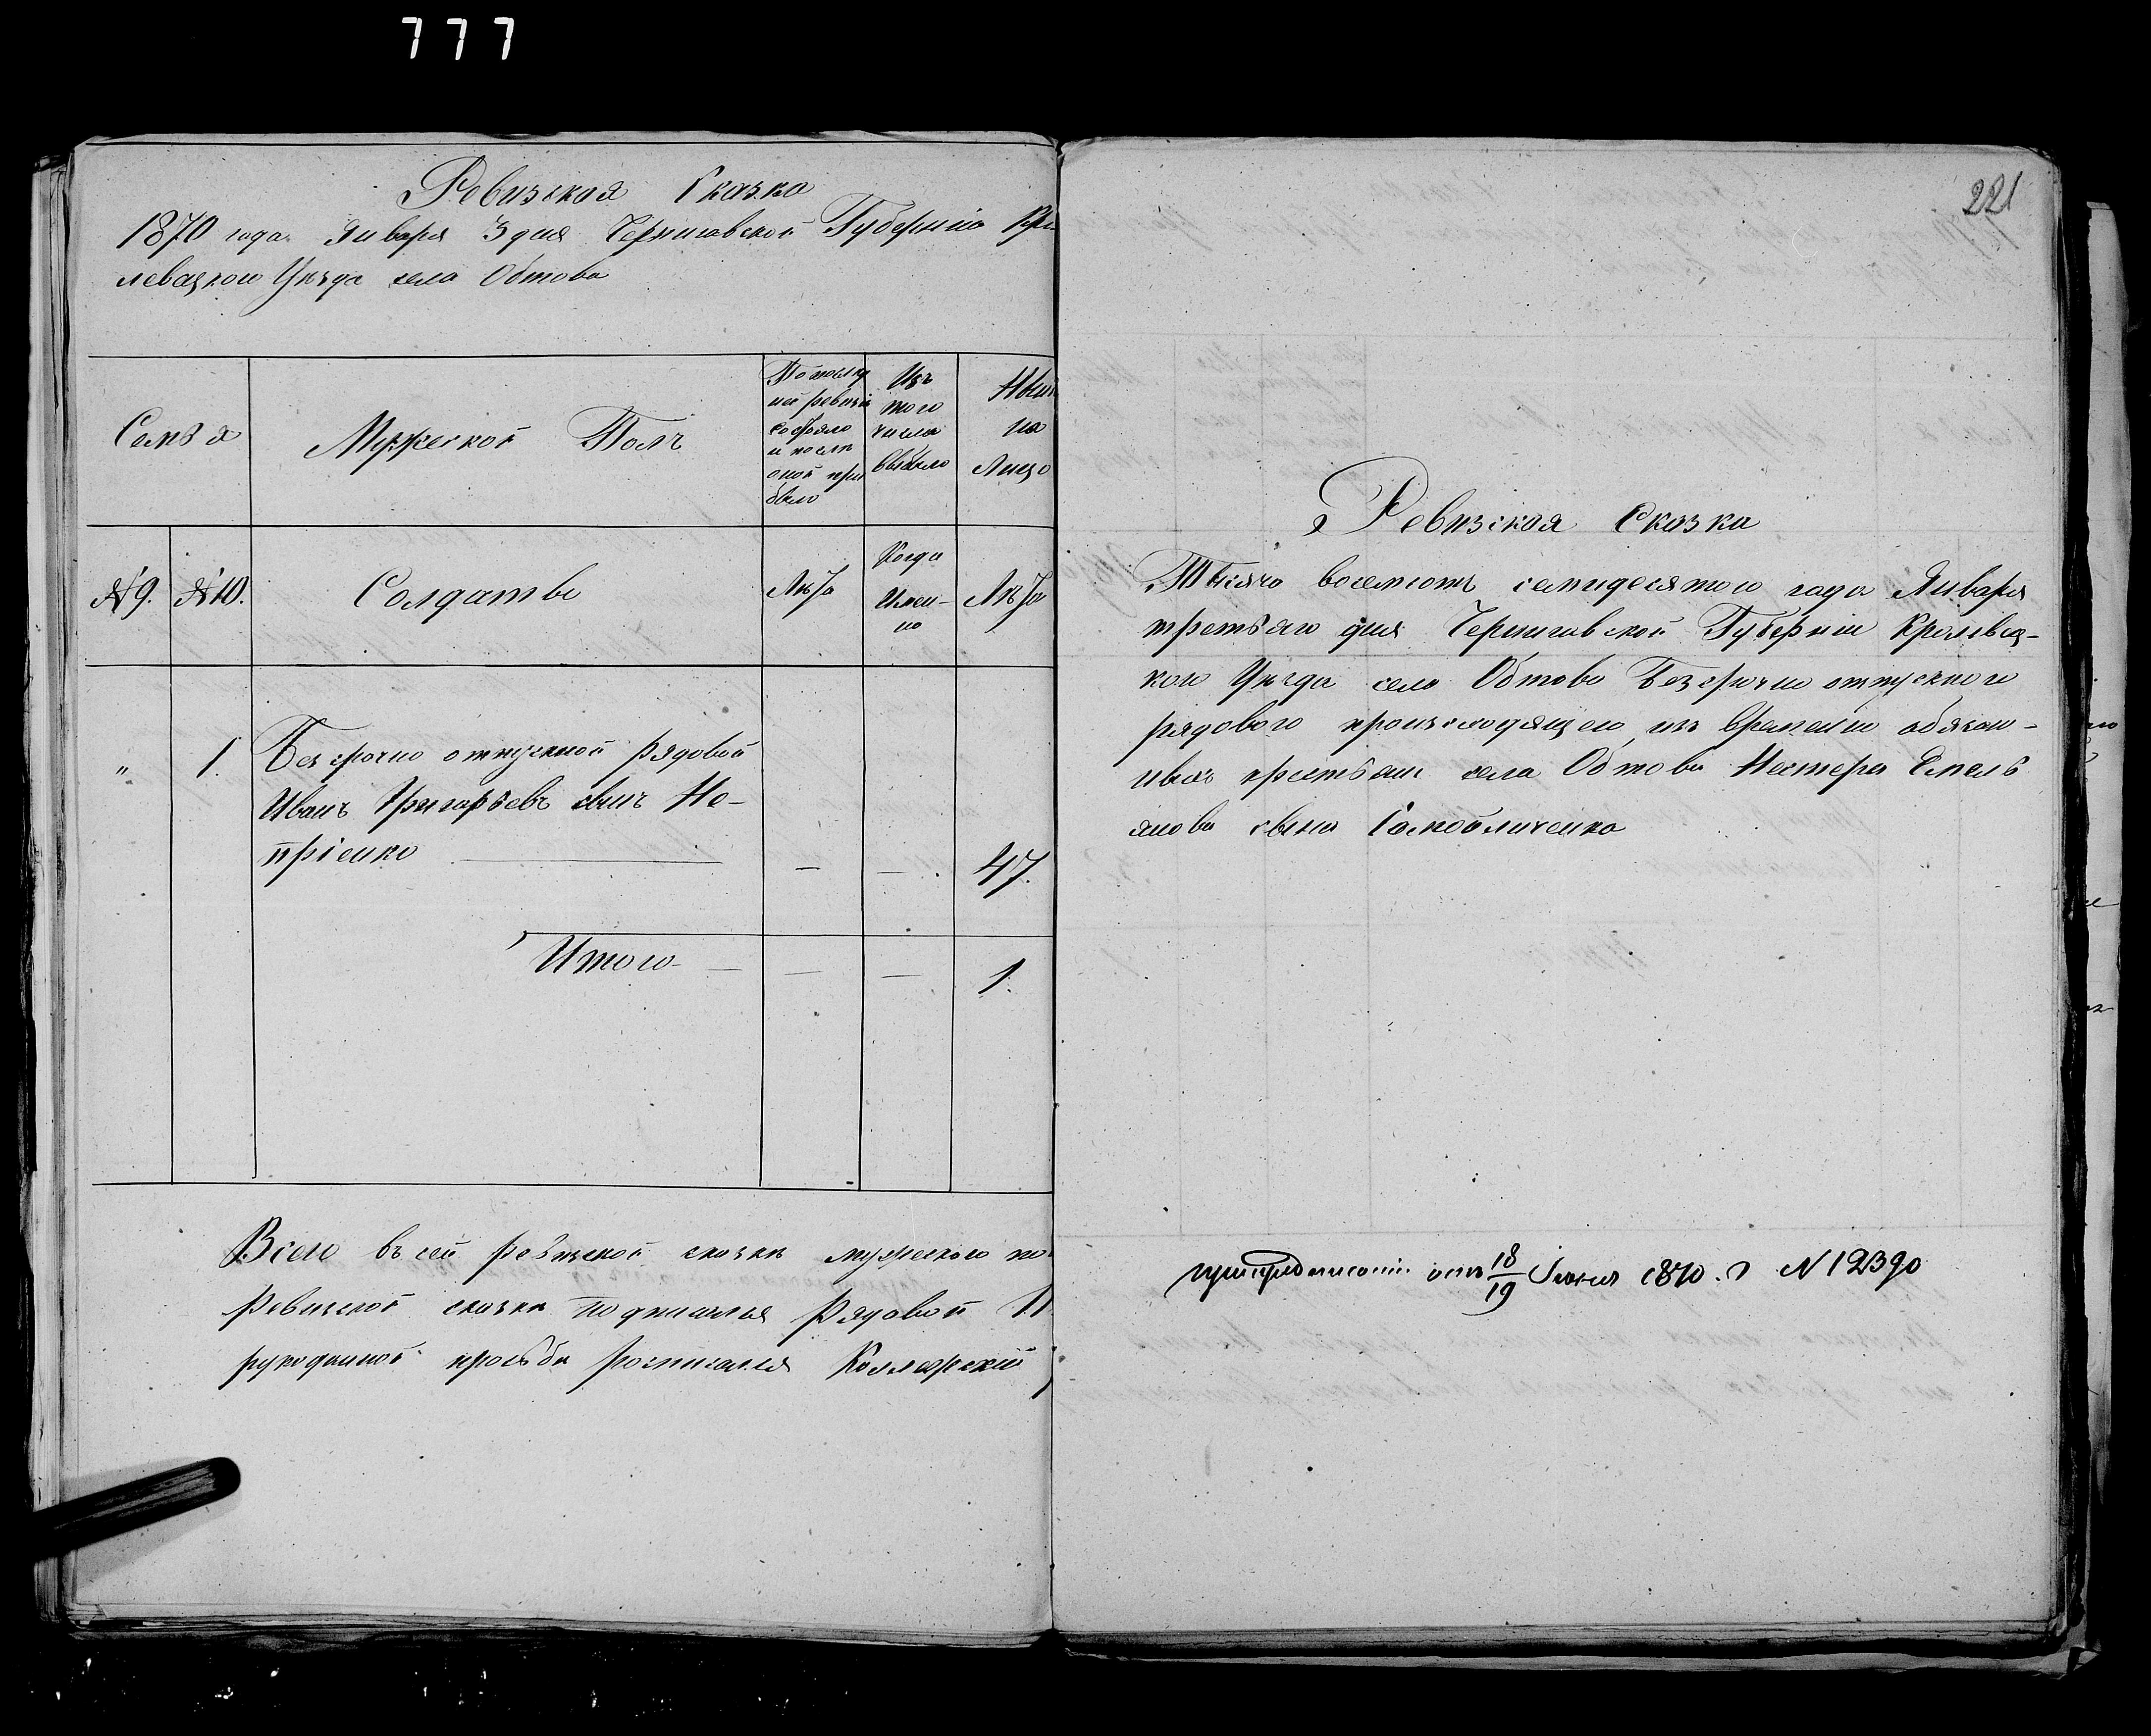 777
Ревизская Сказка
1870 года Января 3 дня Черниговской Губерніи Кро
левецкого Уѣзда села Обтова
Семья
Мужеской Полъ
По послѣд
ней ревизіи
состояло
и послѣ
оной при
было
Изъ
того
числа
выбыло
Нын
на
Лицо
№ 9. № 10. Солдатъ Лѣта
Когда
Имен-
но
Лѣта
" 1. Безсрочно отпускной рядовой
Иванъ Григорьевъ сынъ Не-
пріенко — — — 47.
Итого — — — 1.
Всего въ сей ревизской сказкѣ мужескаго по
Ревизской сказкѣ подписался Рядовой
рукоданной просьбѣ росписался Коллежскій
221
Ревизская Сказка
Тысяча восемсотъ семидесятого года Января
третьяго дня Черниговской Губерніи Кролевец-
кого Уѣзда села Обтова Безсрочно отпускного
рядового происходящего изъ временно обязан-
ныхъ крестьянъ села Обтова Нестера Емель
янова сына Самойличенка
отъ 18/19 Іюня 1870 г N 12390